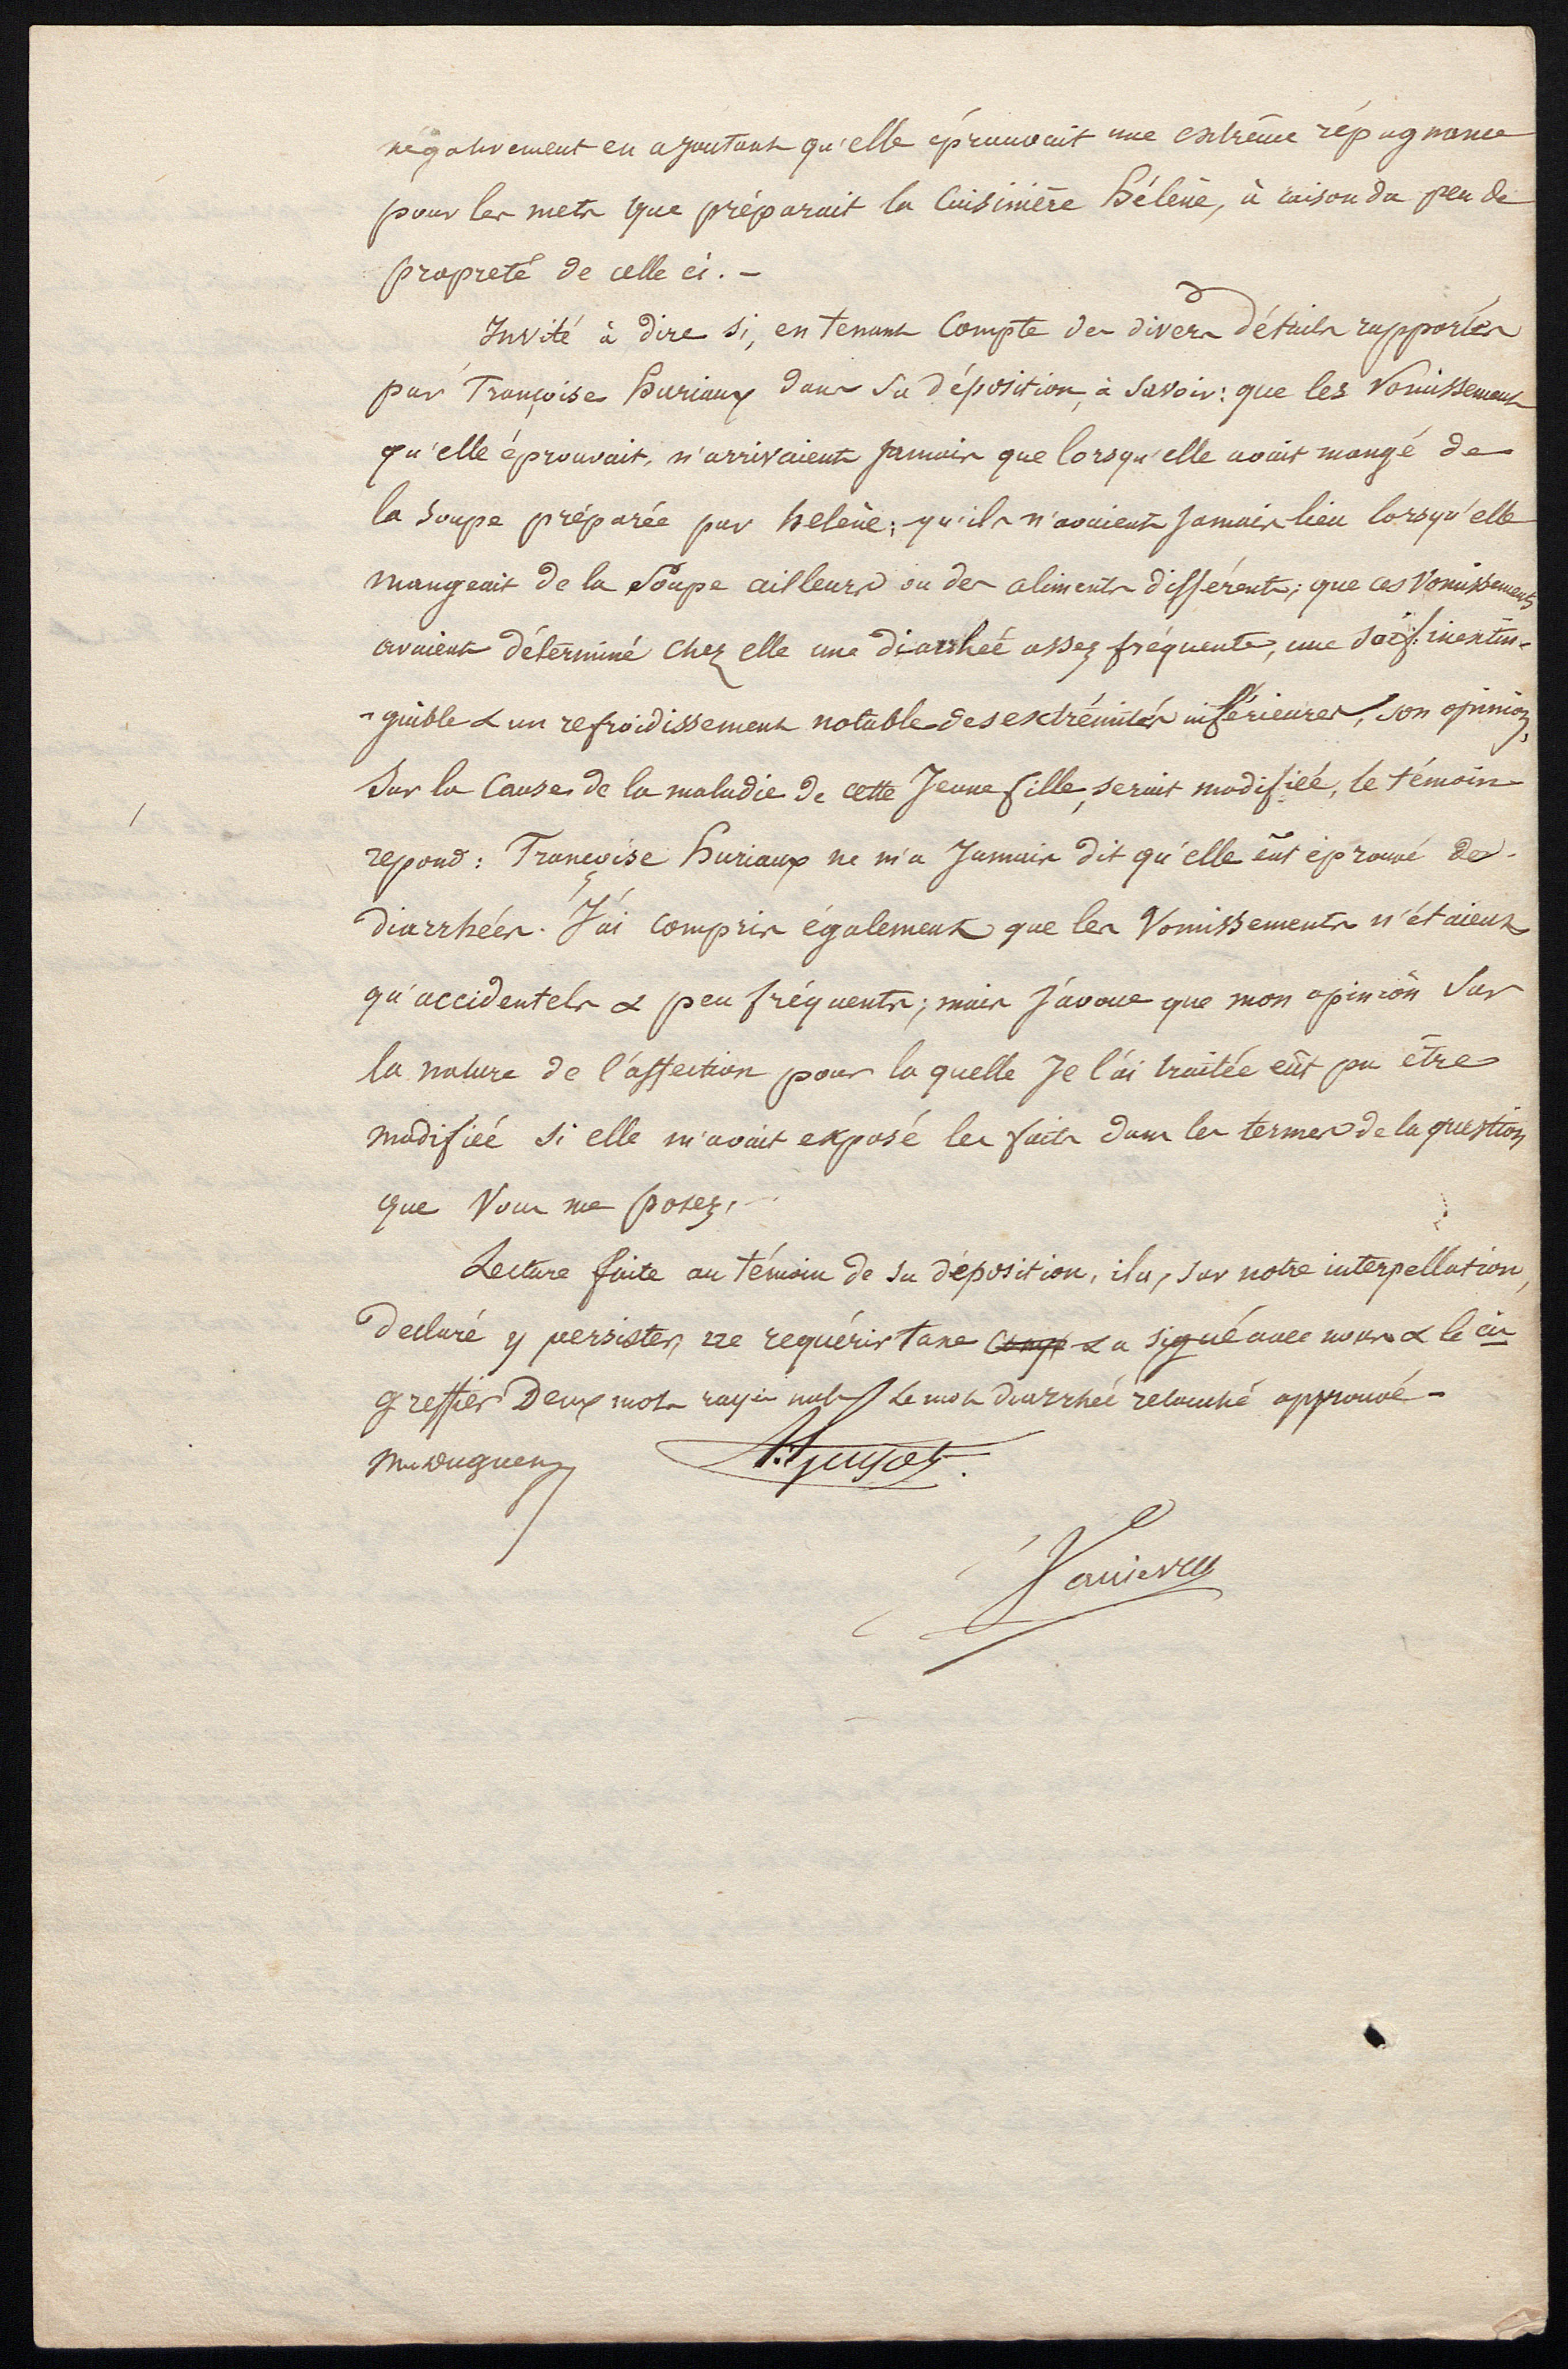 négativement en ajoutant qu'elle éprouvait une extrême répugnance
pour les mets que préparait la Cuisinière hélène, à raison du peu de
propreté de celle ci. –
Invité à dire si, en tenant Compte des divers détails rapportés
par Françoise huriaux dans sa déposition, à savoir: que les vomissements
qu'elle éprouvait, n'arrivaient jamais que lorsqu'elle avait mangé de
la soupe préparée par helène; qu'ils n'avaient jamais lieu lorsqu'elle
mangeait de la soupe ailleurs ou des aliments différents; que ces vomissements
avaient déterminé chez elle une diarrhée assez fréquente, une soif inextin-
-guible & un refroidissement notable des extrémités inférieures, son opinion,
sur la Cause de la maladie de cette Jeune fille, serait modifiée, le témoin
repond: Françoise huriaux ne m'a Jamais dit qu'elle eut éprouvé de
diarrhées. J'ai compris également que les vomissements n'étaient
qu'accidentels & peu fréquents; mais j'avoue que mon opinion sur
la nature de l'affection pour laquelle Je l'ai traitée eût pu être
modifiée si elle m'avait exposé les faits dans les termes de la question
que Vous me posez.
Lecture faite au témoin de sa déposition, il a, sur notre interpellation,
declaré y persister, ne requérir taxe & a signé avec nous & le cis
greffier Deux mots rayés nuls Le mot diarrhée retouché approuvé –